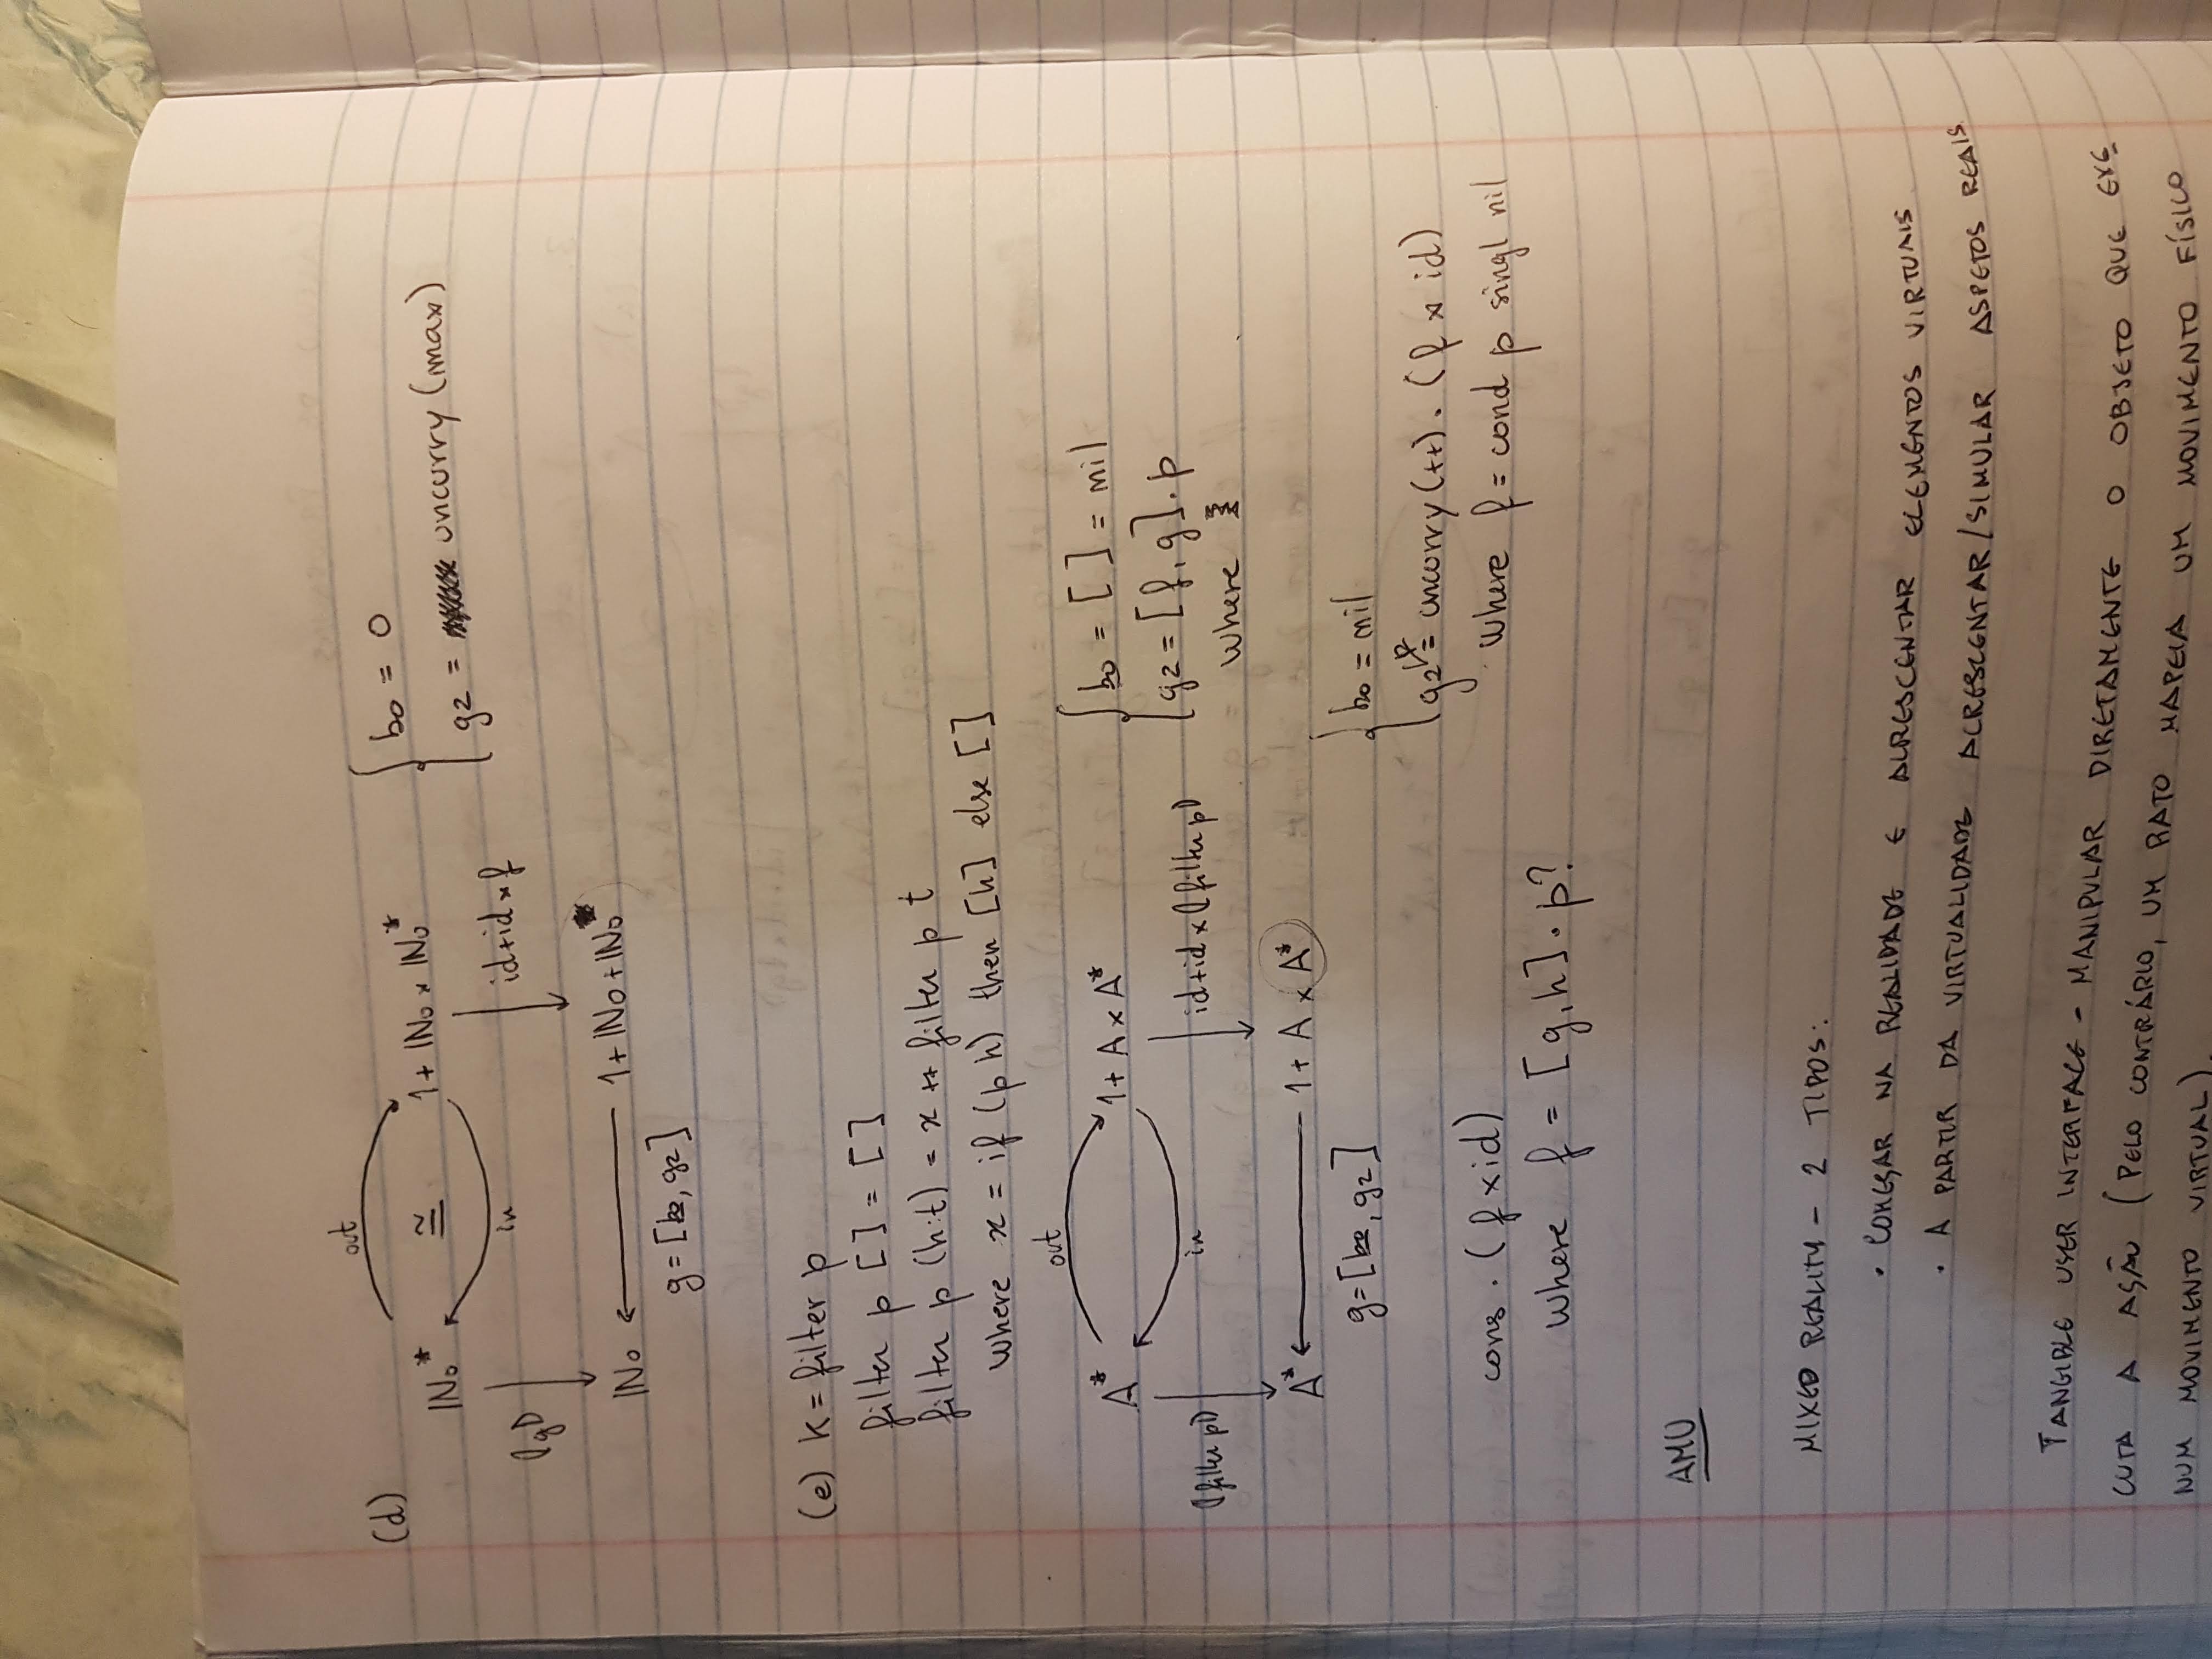 (d)
out
ℕ₀* ≅ 1 + ℕ₀ × ℕ₀*
in
⦇g⦈
id + id × f
ℕ₀ ← 1 + ℕ₀ + ℕ₀
g = [b₀, g₂]
b₀ = 0
g₂ = uncurry (max)
(e) k = filter p
filter p [] = []
filter p (h:t) = x ++ filter p t
where x = if (p h) then [h] else []
out
A* 1 + A × A*
in
⦇filter p⦈
id + id × ⦇filter p⦈
A* ← 1 + A × A*
g = [b₀, g₂]
b₀ = [] = nil
g₂ = [f, g] . p
where
b₀ = nil
g₂ p = uncurry (++) . (f × id)
where f = cond p singl nil
cons . (f × id)
where f = [g, h] . p?
AMU
MIXED REALITY - 2 TIPOS:
• COMEÇAR NA REALIDADE E ACRESCENTAR ELEMENTOS VIRTUAIS
• A PARTIR DA VIRTUALIDADE ACRESCENTAR/SIMULAR ASPETOS REAIS
TANGIBLE USER INTERFACE - MANIPULAR DIRETAMENTE O OBJETO QUE EXE
CUTA A AÇÃO (PELO CONTRÁRIO, UM RATO MAPEIA UM MOVIMENTO FÍSICO
NUM MOVIMENTO VIRTUAL).